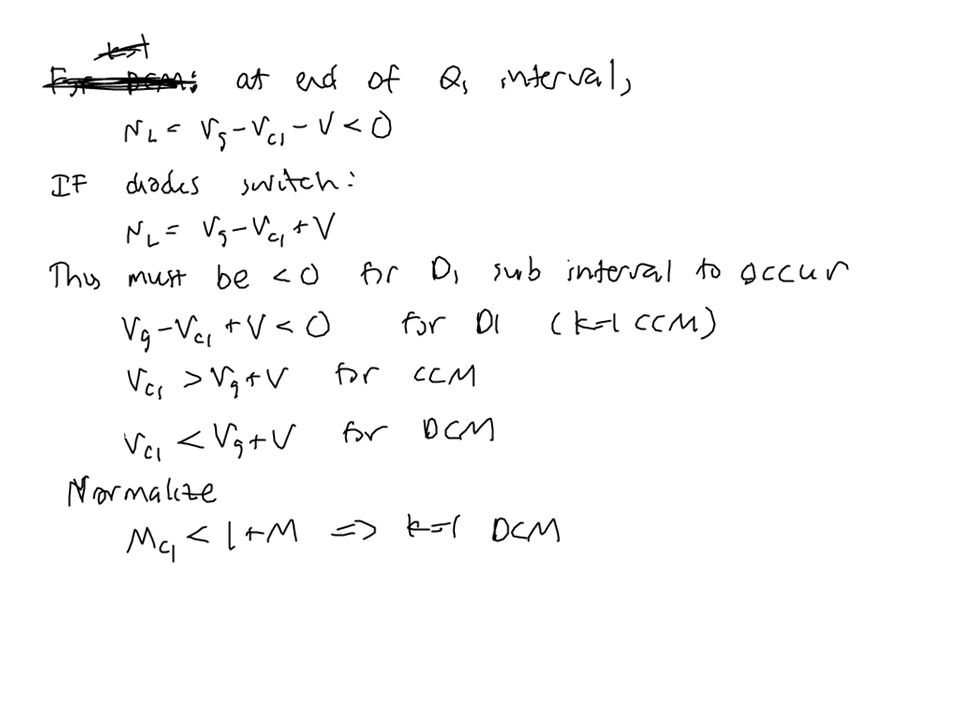 at end of Q₁ interval,
v_L = V_g - V_C1 - V < 0
IF diodes switch:
v_L = V_g - V_C1 + V
Thus must be < 0 for D₁ sub interval to occur
V_g - V_C1 + V < 0 for D1 (k=1 CCM)
V_C1 > V_g + V for CCM
V_C1 < V_g + V for DCM
Normalize
M_C1 < 1 + M => k=1 DCM